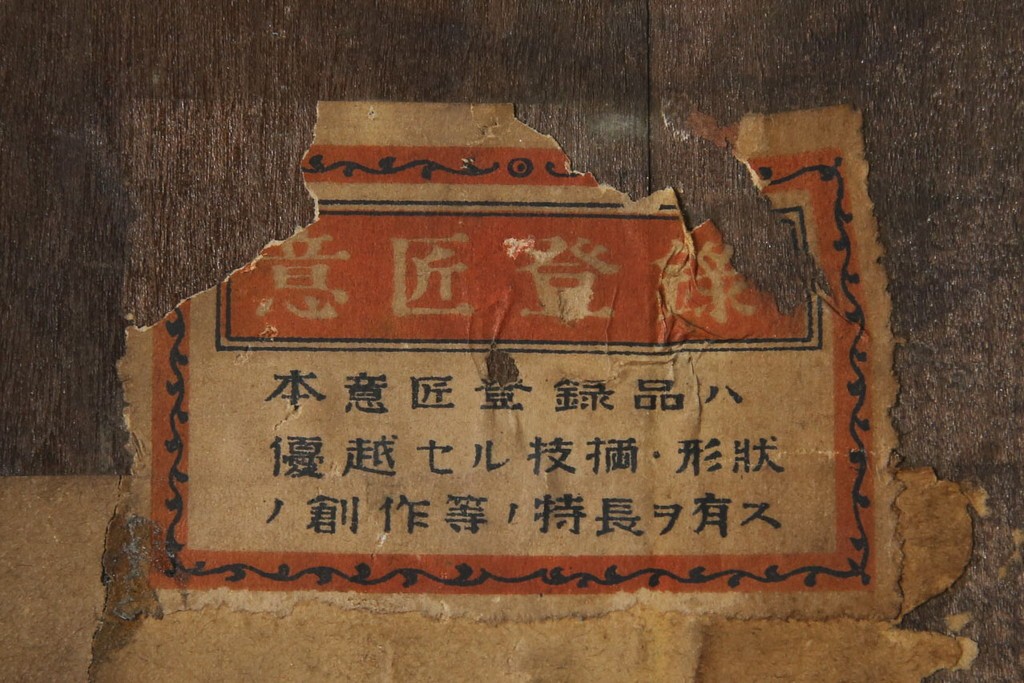 意匠登錄
本意匠登録品ハ
優越セル技術・形狀
ノ創作等ノ特長ヲ有ス